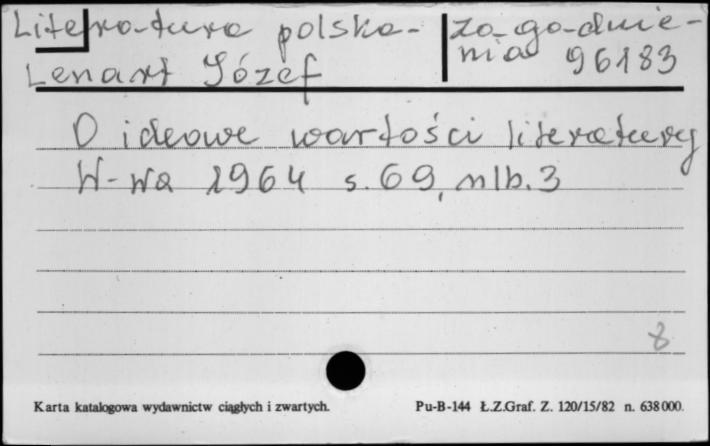 Literatura polska - zagadnie-
nia 96183
Lenart Józef
O ideowe wartości literatury
W-wa 1964 s. 69, nlb. 3
8
Karta katalogowa wydawnictw ciągłych i zwartych. Pu-B-144 Ł.Z.Graf. Z. 120/15/82 n. 638000.